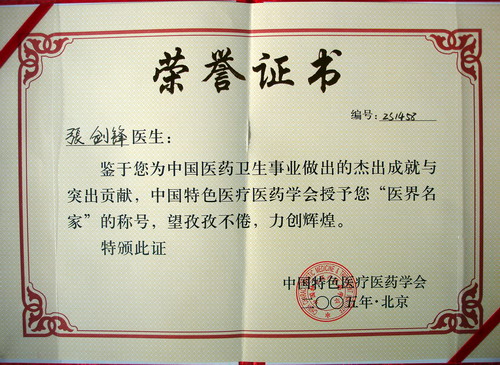 荣誉证书
编号：251458
張剑锋医生：
鉴于您为中国医药卫生事业做出的杰出成就与
突出贡献，中国特色医疗医药学会授予您“医界名
家”的称号，望孜孜不倦，力创辉煌。
特颁此证
中国特色医疗医药学会
二〇〇五年·北京